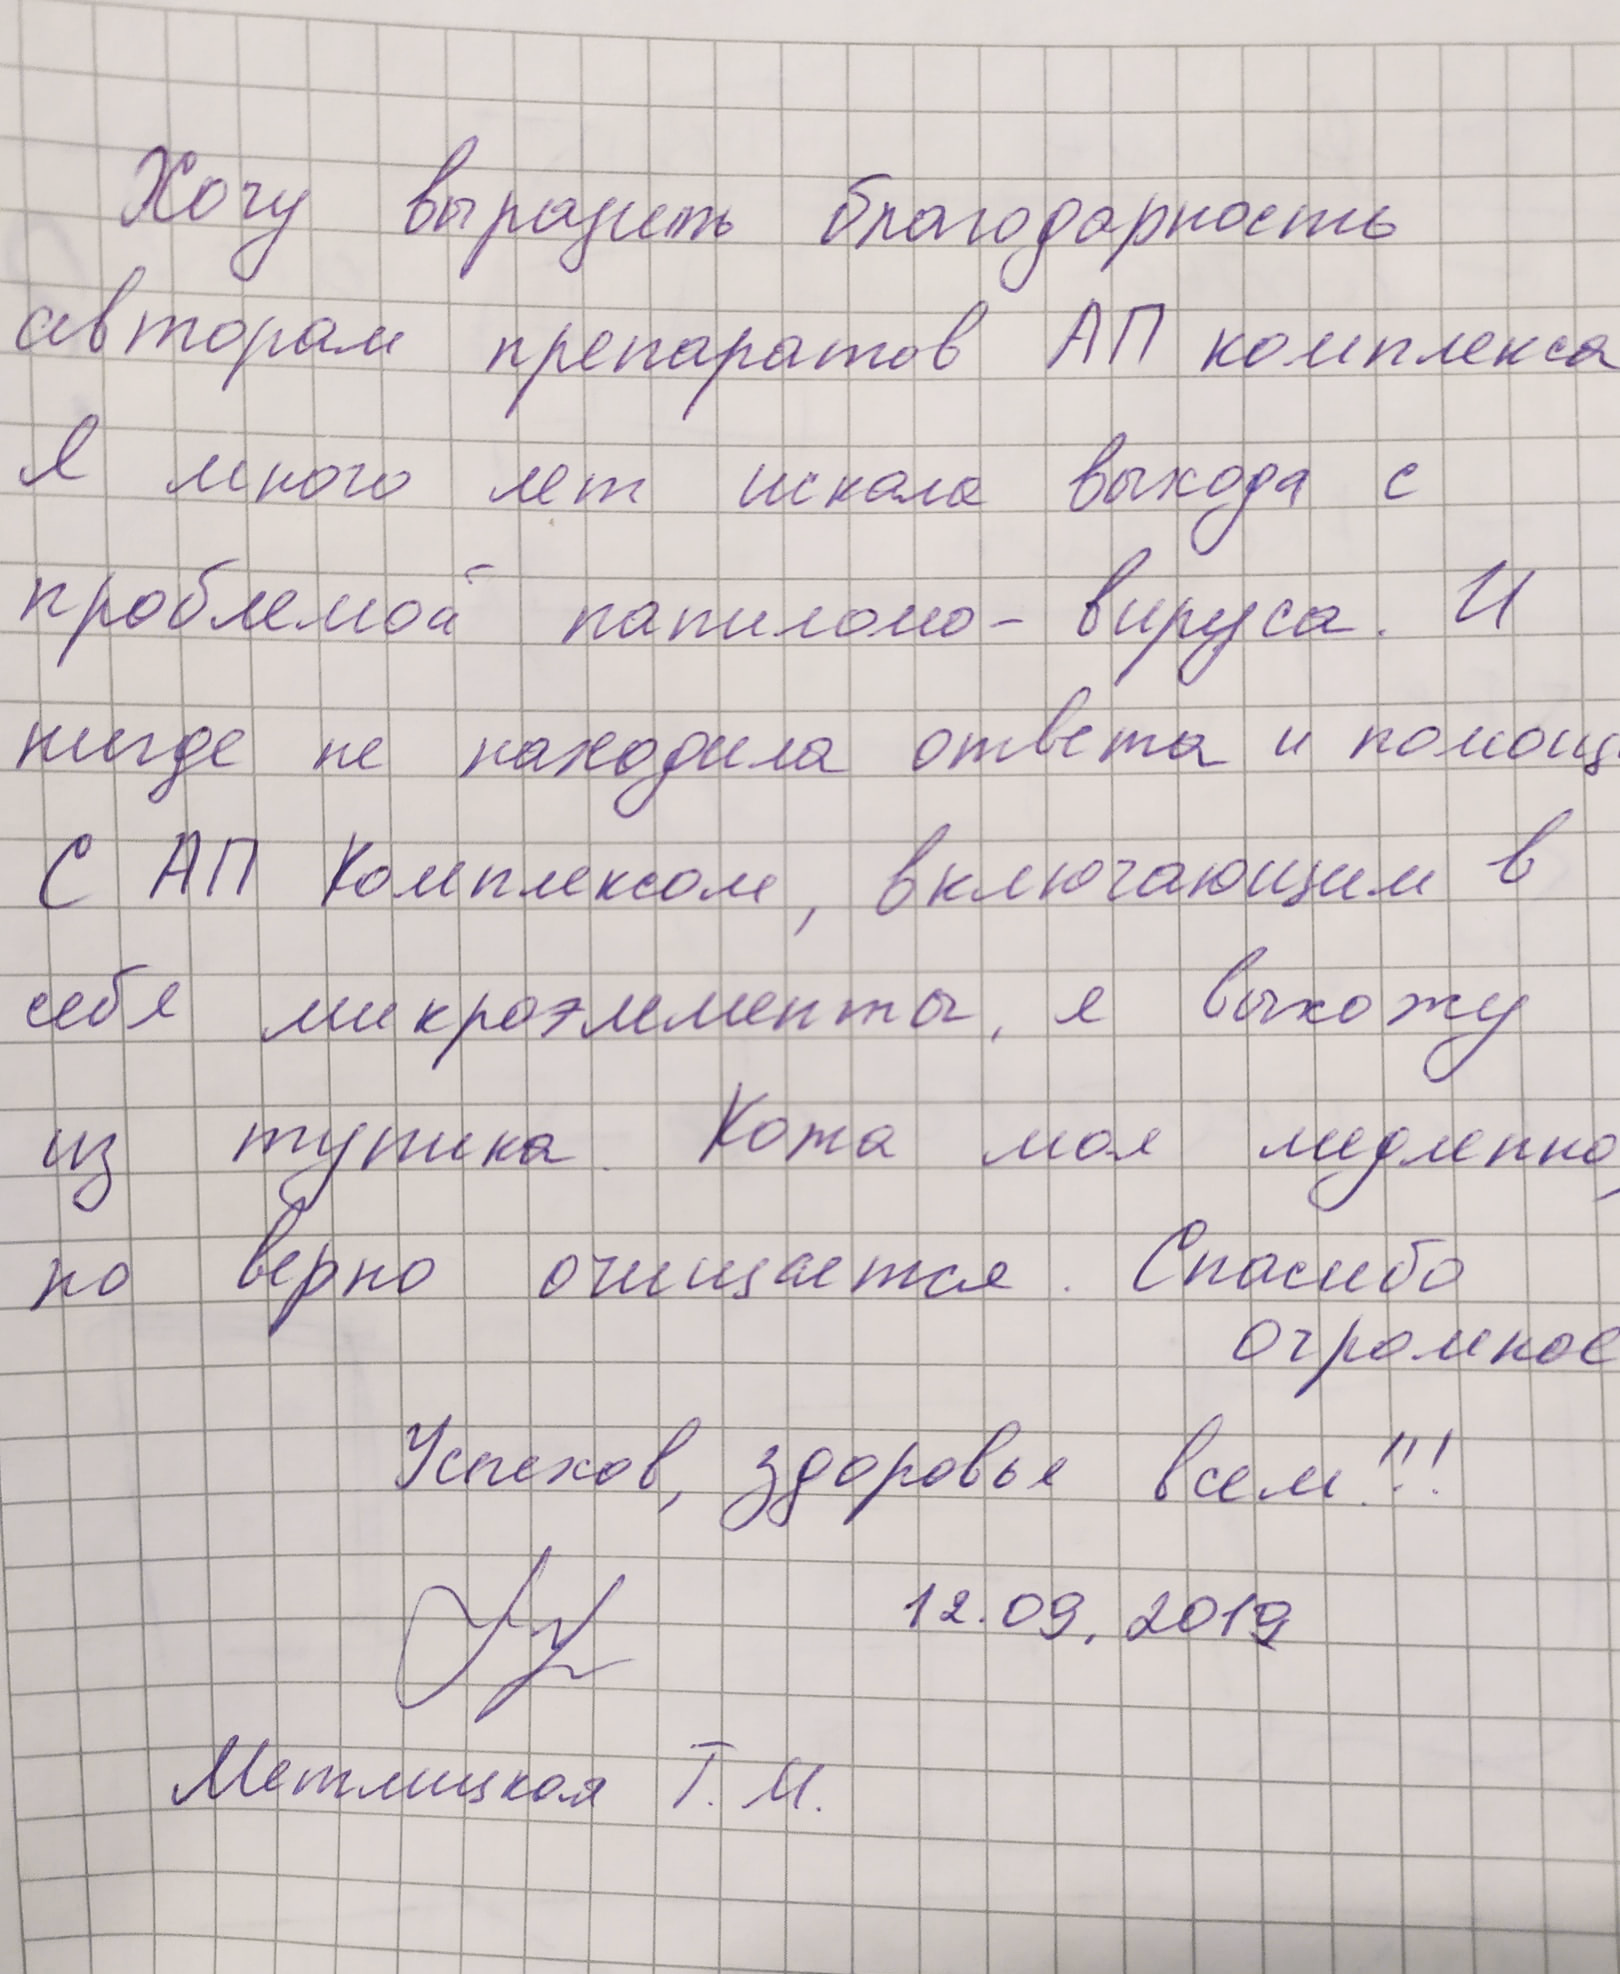 Хочу выразить благодарность
авторам препаратов АП комплекса
Я много лет искала выхода с
проблемой папиломо- вируса. И
нигде не находила ответа и помощи
С АП Комплексом, включающим в
себя микроэлементы, я выхожу
из тупика. Кожа моя медленно,
но верно очищается. Спасибо
огромное
Успехов, здоровья всем!!!
12.09.2019
Метлицкая Т. И.